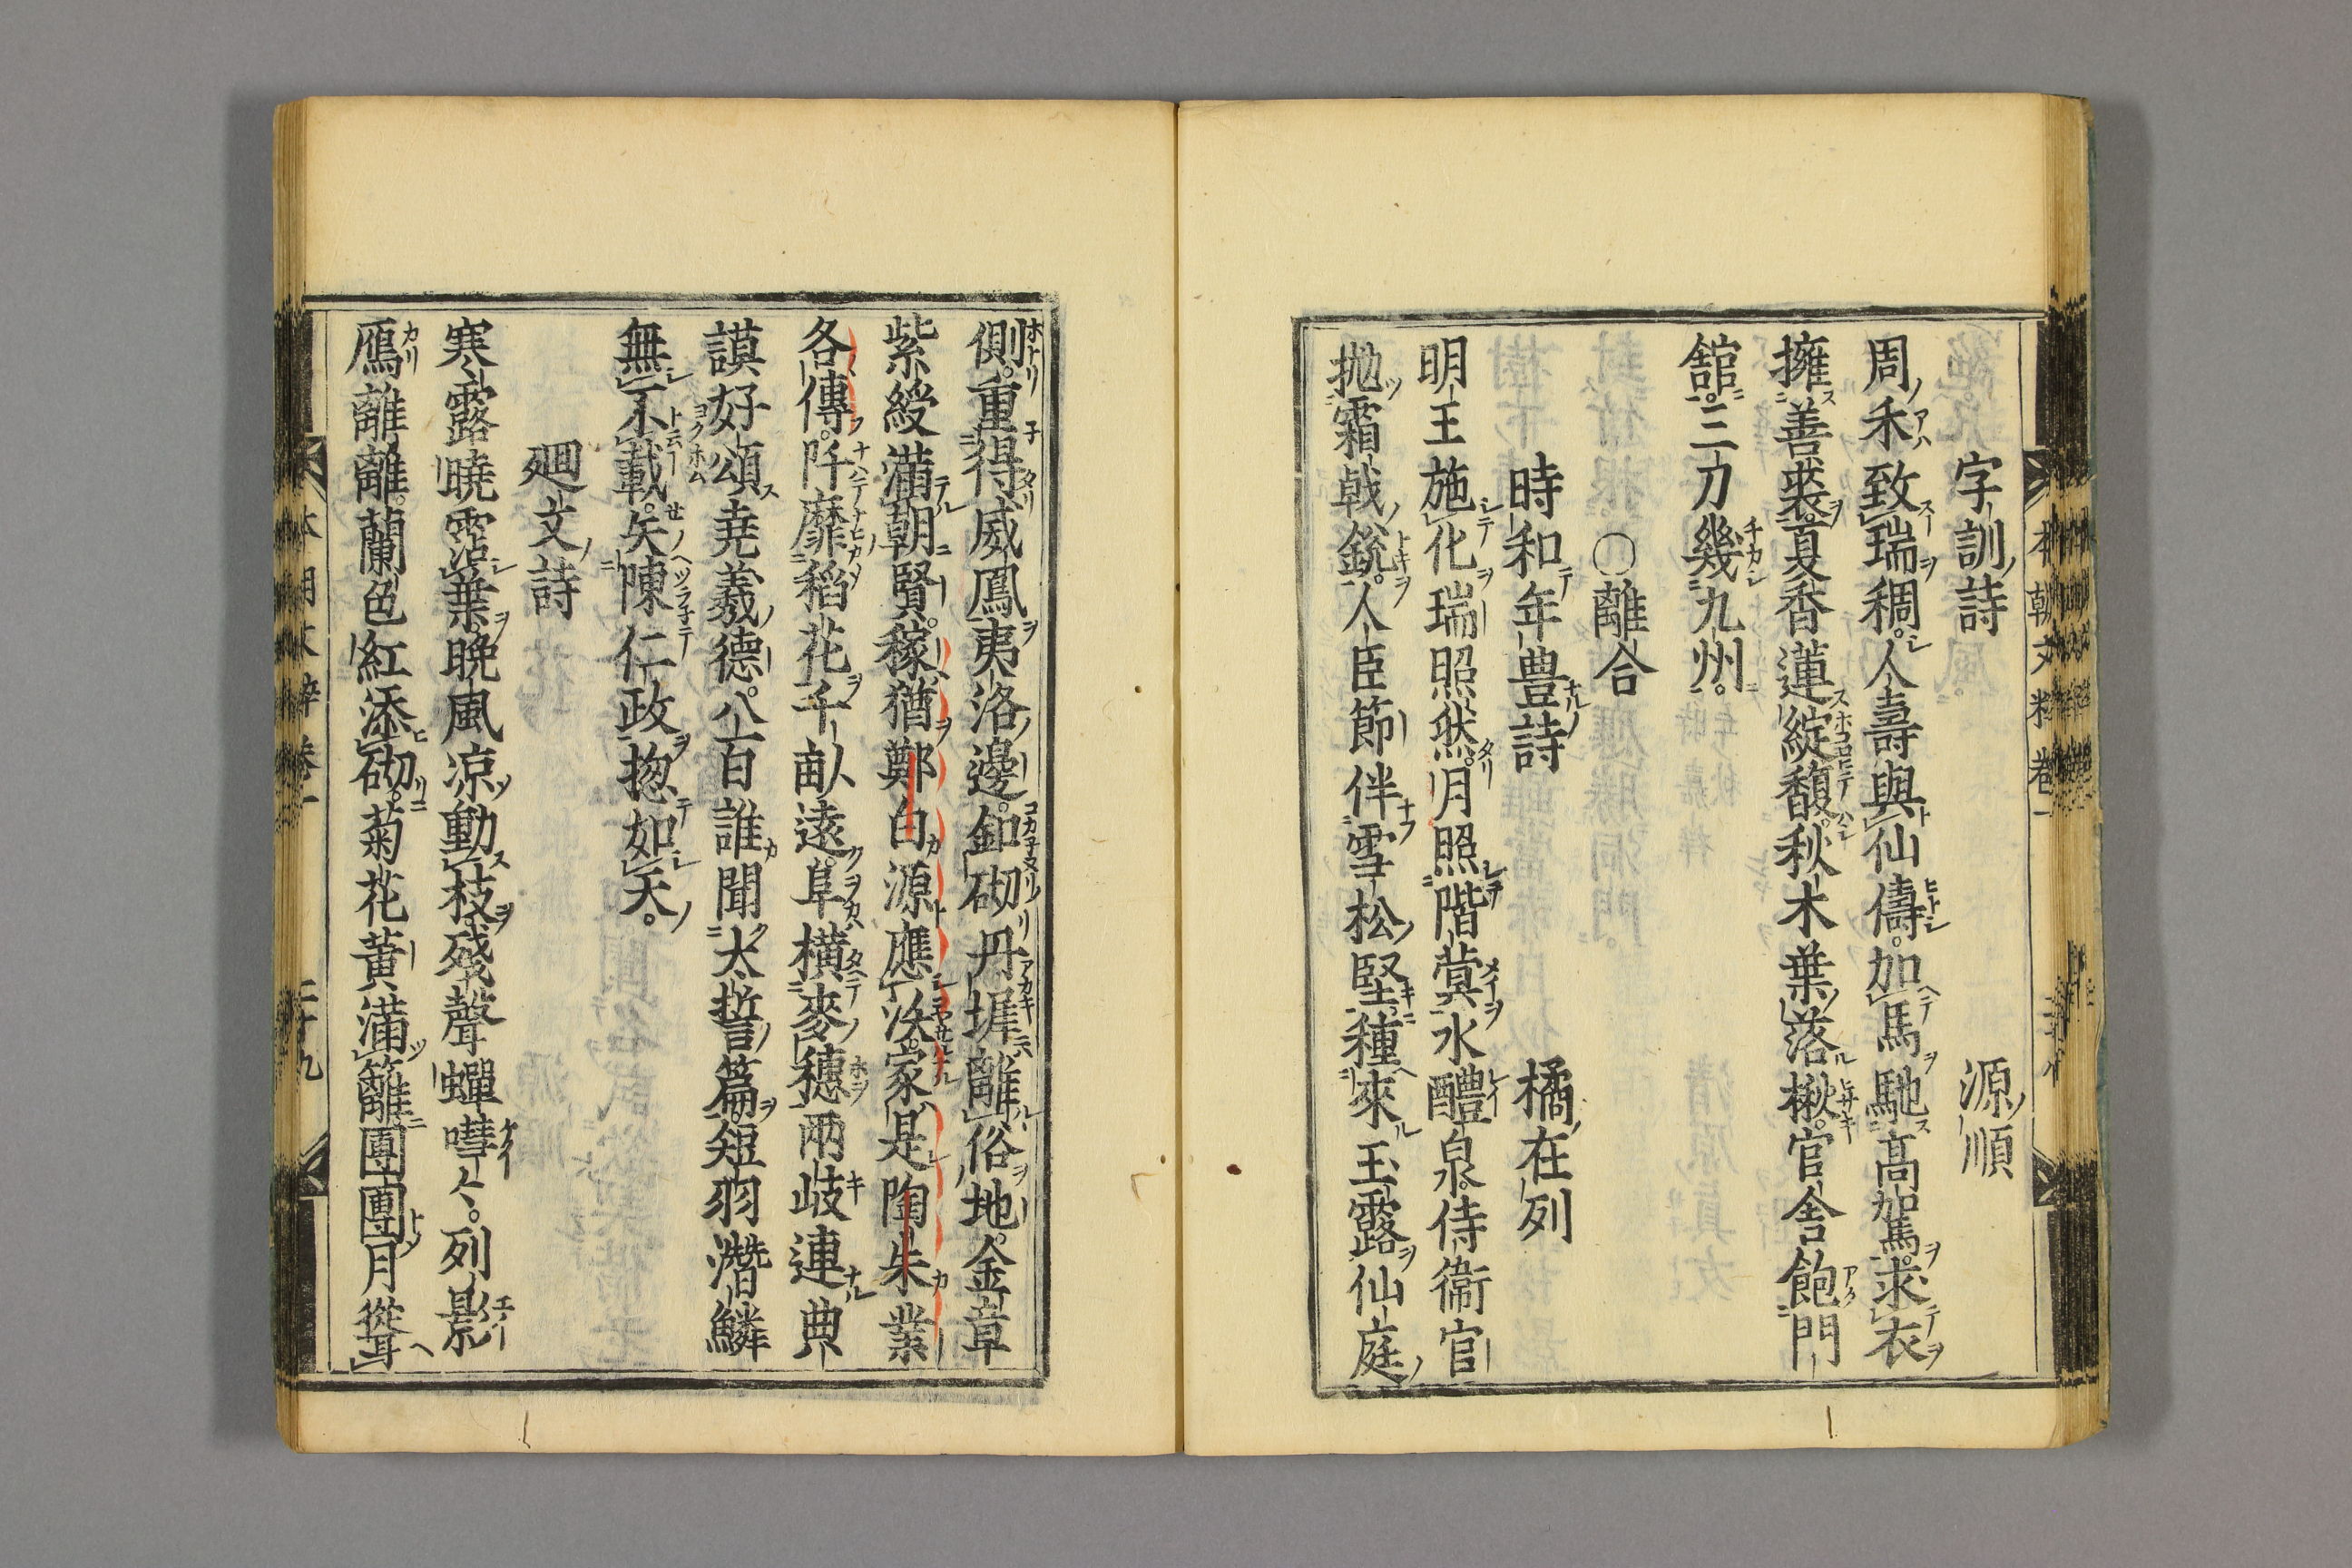 字訓詩　源順
周禾致瑞稠。人壽與仙儔。加馬馳高駕。求衣
擁善裘。夏香蓮綻馥。秋木葉落楸。官舍飽門
舘。三刀幾九州。
〇離合
時和年豊詩　橘在列
明王施化瑞照然。月照階蓂水醴泉。侍衞官
抛霜戟鋭。人臣節伴雪松堅。種來玉露仙庭
側。重得威鳳夷洛邊。釦砌丹墀離俗地。金章
紫綬滿朝賢。稼猶鄭白源應決。家是陶朱業
各傳。阡靡稻花千畝遠。阜橫麥穗兩岐連。典
謨好頌堯羲德。八百誰聞大誓篇。短羽潛鱗
無不載。矢陳仁政惣如天。
廻文詩
寒露曉霑葉。晚風凉動枝。殘聲蟬嘒々。列影
鴈離離。蘭色紅添砌。菊花黃滿籬。團團月聳
本朝文粹卷一
本朝文粹卷一　二十九